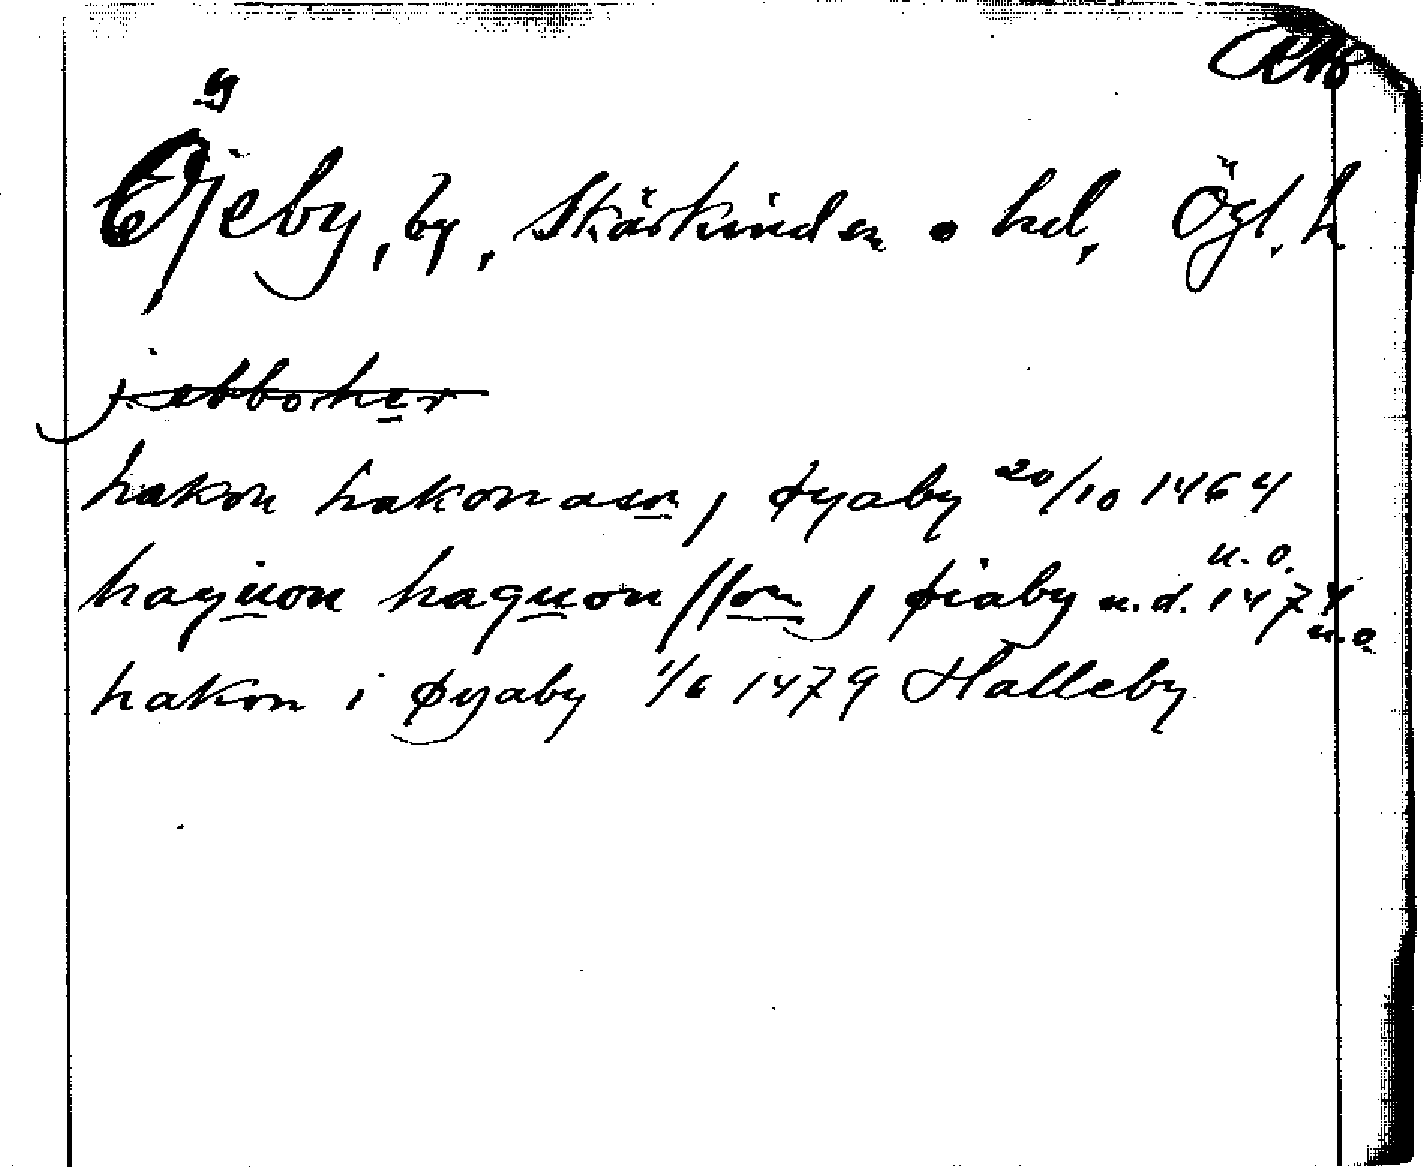 Öjeby, by, Skärkinds sn o hd, Ögl. h
hakon hakonason, j øyaby 20/10 1464
haquon haquonsson j øiaby u.d. 1474 u.o.
hakon i øyaby 1/6 1479 Halleby